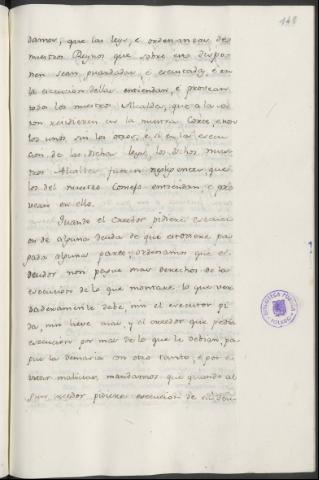 148
damos, que las leys, e ordenanzas de
nuestros Reynos que sobre esto dispo
nen sean guardadas, e executadas, e en
la execucion dellas entiendan, e provean
todos los nuestros Alcaldes, que a la sa
zon residieren en la nuestra Corte, e no
los unos sin los otros, e si en la execu
cion de las dichas leyes, los dichos nues
tros Alcaldes fueren negligentes, que
los del nuestro Consejo entiendan, e pro
vean en ello.
Quando el Creedor pidiere execuci
on de alguna deuda de que estoviere pa
gada alguna parte, ordenamos que el
deudor non pague mas derechos de la
execucion de lo que montare lo que ver
daderamente debe, nin el executor pi
da, nin lieve mas, y el creedor que pedio
execucion por mas de lo que le debian, pa
gue la demasia con otro tanto, e por e
vitar malicias, mandamos que quando al
gun creedor pidiere execucion de su deu
BIBLIOTECA PUBLICA
TOLEDO